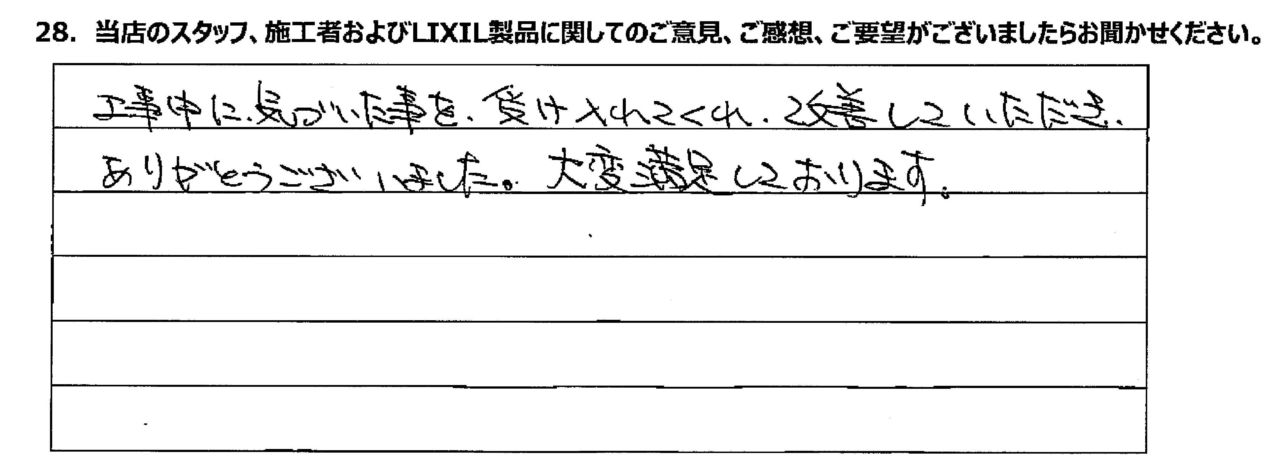 28. 当店のスタッフ、施工者およびLIXIL製品に関してのご意見、ご感想、ご要望がございましたらお聞かせください。
工事中に、気づいた事を、受け入れてくれ、改善していただき、
ありがとうございました。大変満足しております。